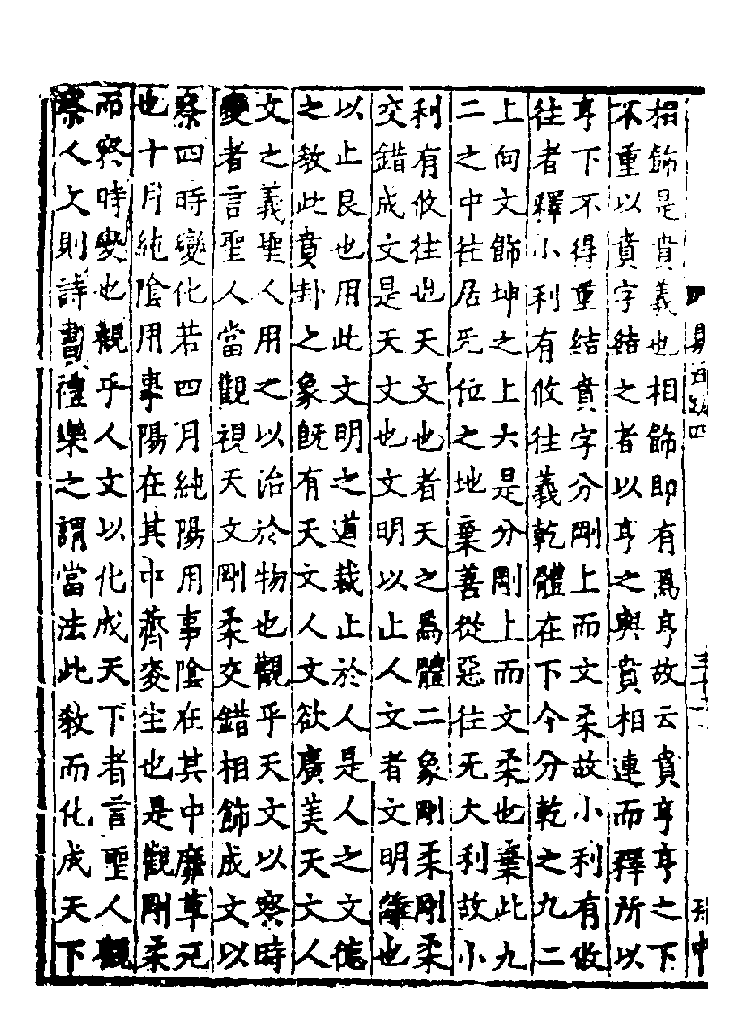 相飾是賁義也相飾即有爲亨故云賁亨亨之下
不重以賁字結之者以亨之與賁相連而釋所以
亨下不得重結賁字分剛上而文柔故小利有攸
往者釋小利有攸往義乾體在下今分乾之九二
上向文飾坤之上六是分剛上而文柔也棄此九
二之中往居无位之地棄善從惡往无大利故小
利有攸往也天文也者天之爲體二象剛柔剛柔
交錯成文是天文也文明以止人文者文明離也
以止艮也用此文明之道裁止於人是人之文德
之教此賁卦之象既有天文人文欲廣美天文人
文之義聖人用之以治於物也觀乎天文以察時
變者言聖人當觀視天文剛柔交錯相飾成文以
察四時變化若四月純陽用事陰在其中靡草死
也十月純陰用事陽在其中薺麥生也是觀剛柔
而察時變也觀乎人文以化成天下者言聖人觀
察人文則詩書禮樂之謂當法此教而化成天下